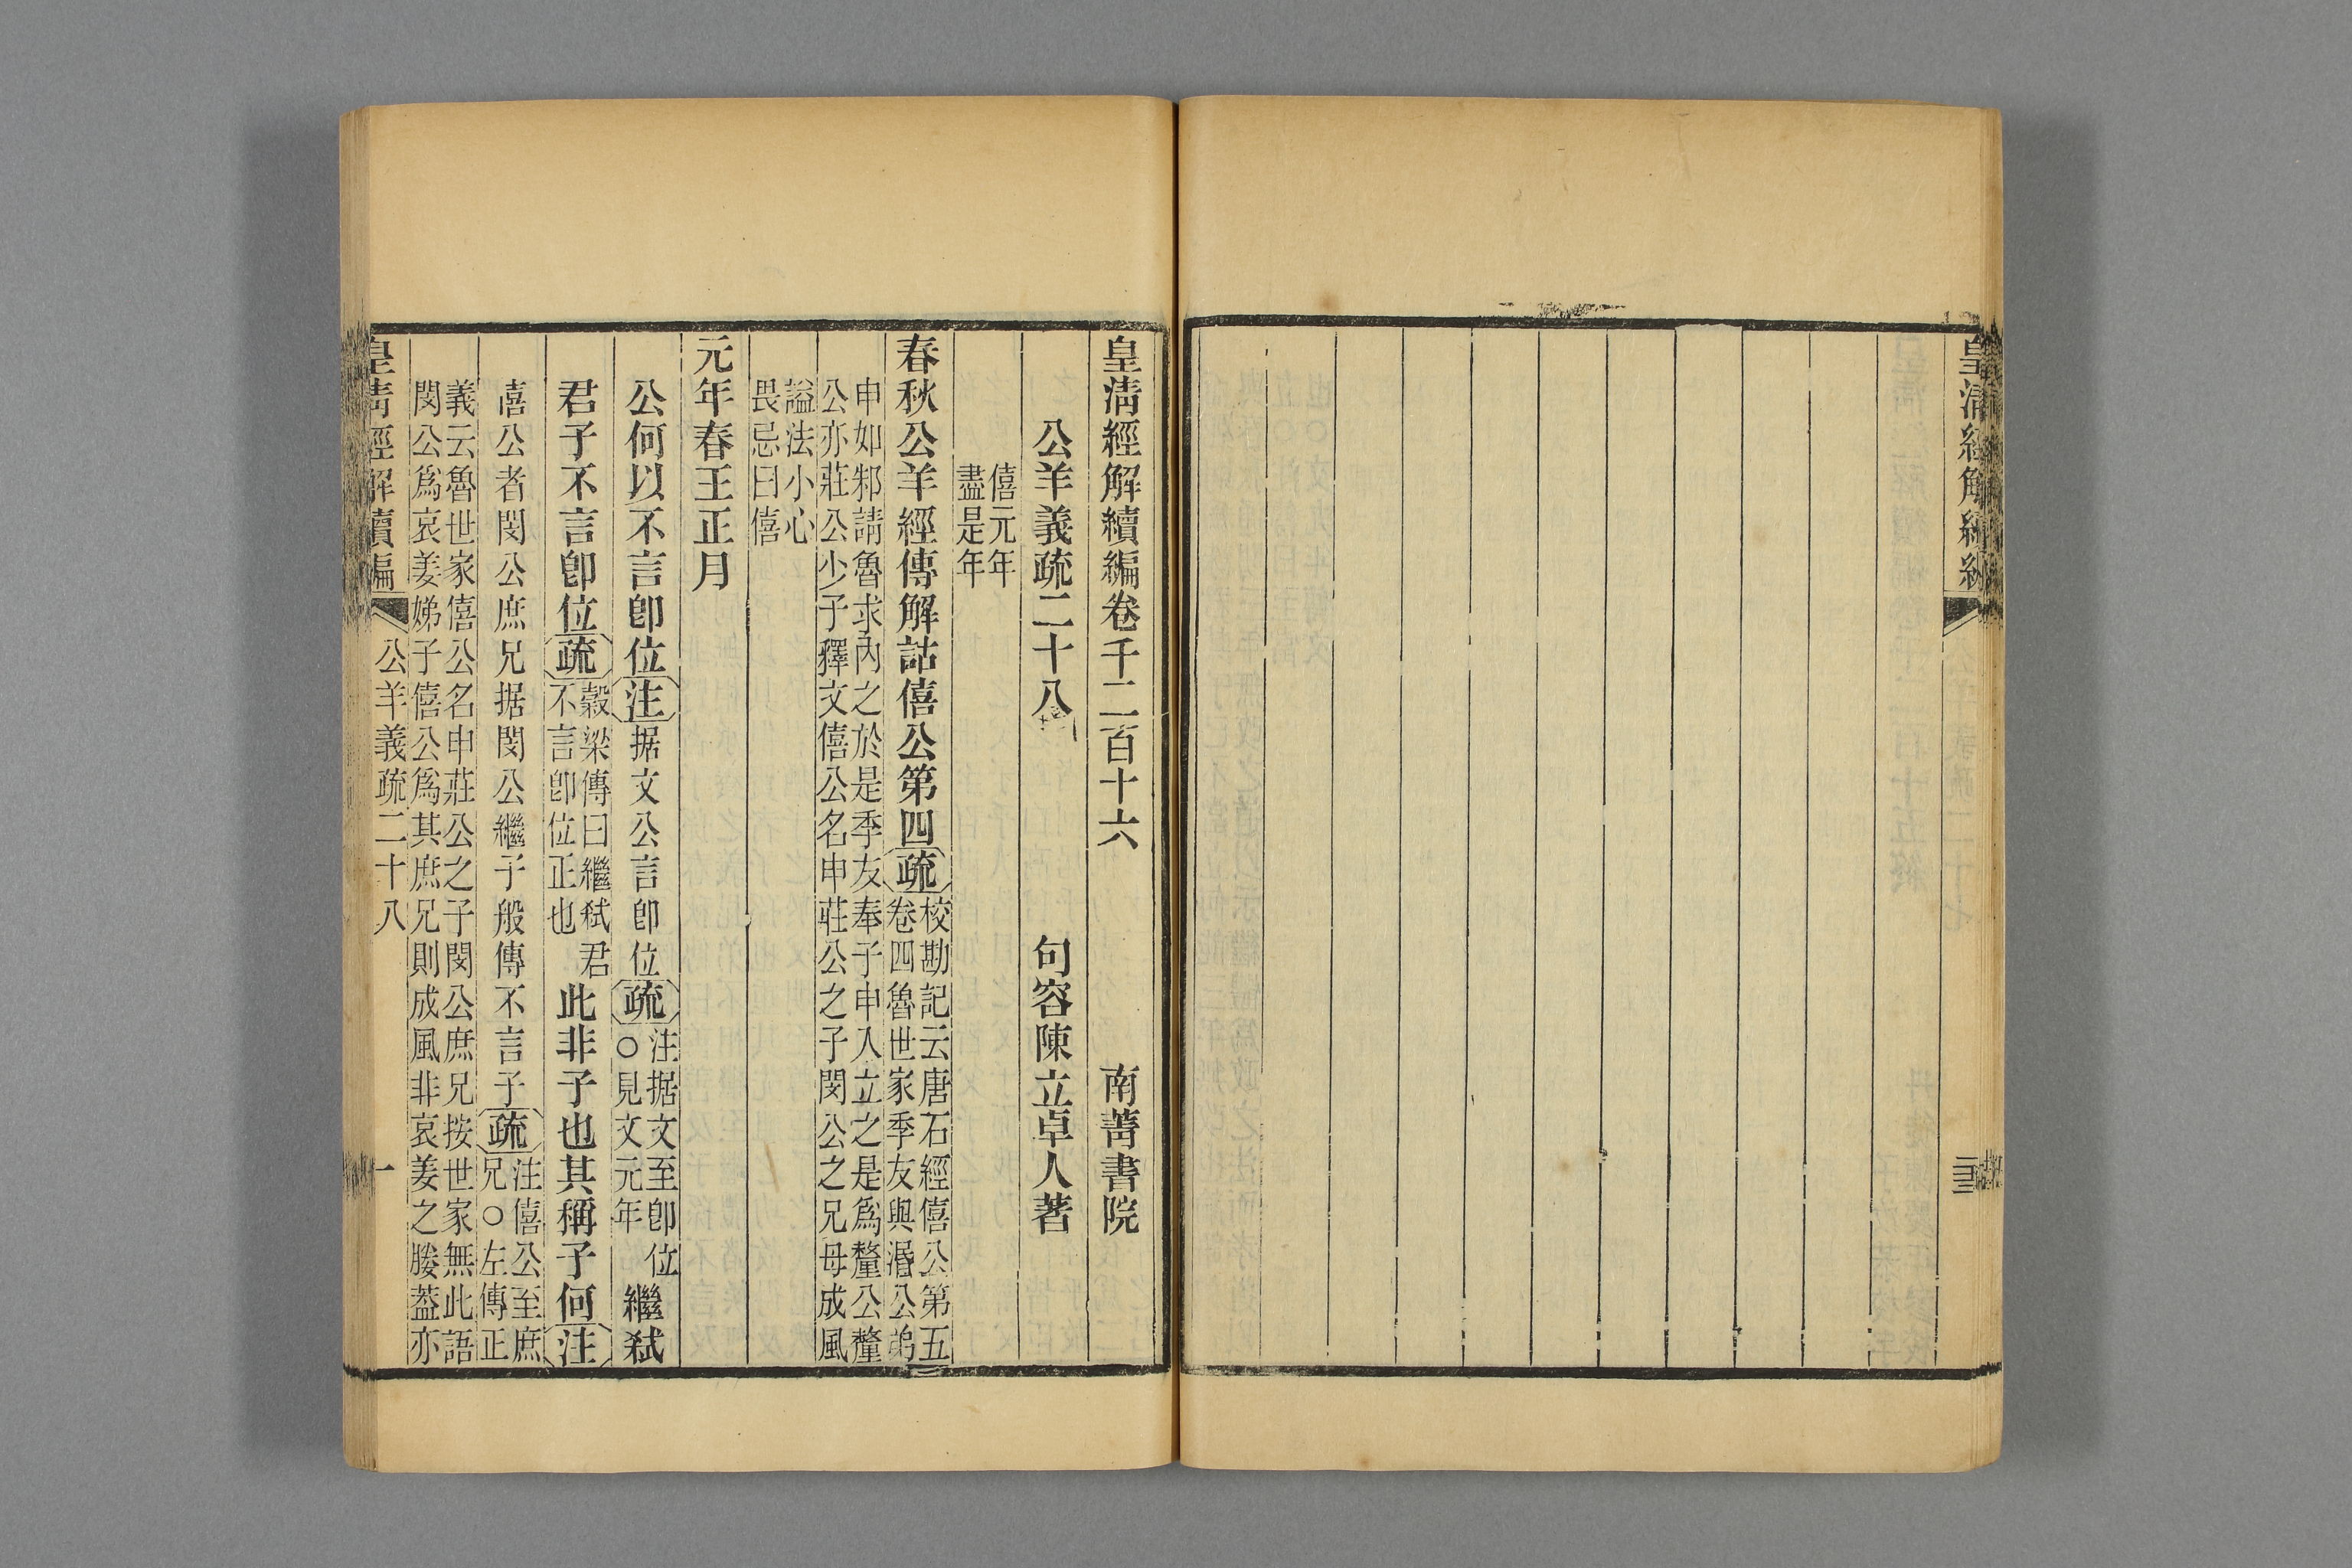 皇清經解續編
皇清經解續編卷千二百十六 南菁書院
公羊義疏二十八 句容陳立卓人著
僖元年
盡是年
春秋公羊經傳解詁僖公第四疏校勘記云唐石經僖公第五
卷四魯世家季友與湣公弟
申如邾請魯求內之於是季友奉子申入立之是爲釐公釐
公亦莊公少子釋文僖公名申莊公之子閔公之兄母成風
謚法小心
畏忌曰僖
元年春王正月
公何以不言卽位注据文公言卽位疏注据文至卽位
○見文元年
繼弒
君子不言卽位疏穀梁傳曰繼弒君
不言卽位正也
此非子也其稱子何注
僖公者閔公庶兄据閔公繼子般傳不言子疏注僖公至庶
兄○左傳正
義云魯世家僖公名申莊公之子閔公庶兄按世家無此語
閔公爲哀姜娣子僖公爲其庶兄則成風非哀姜之媵葢亦
皇清經解續編 公羊義疏二十八 一